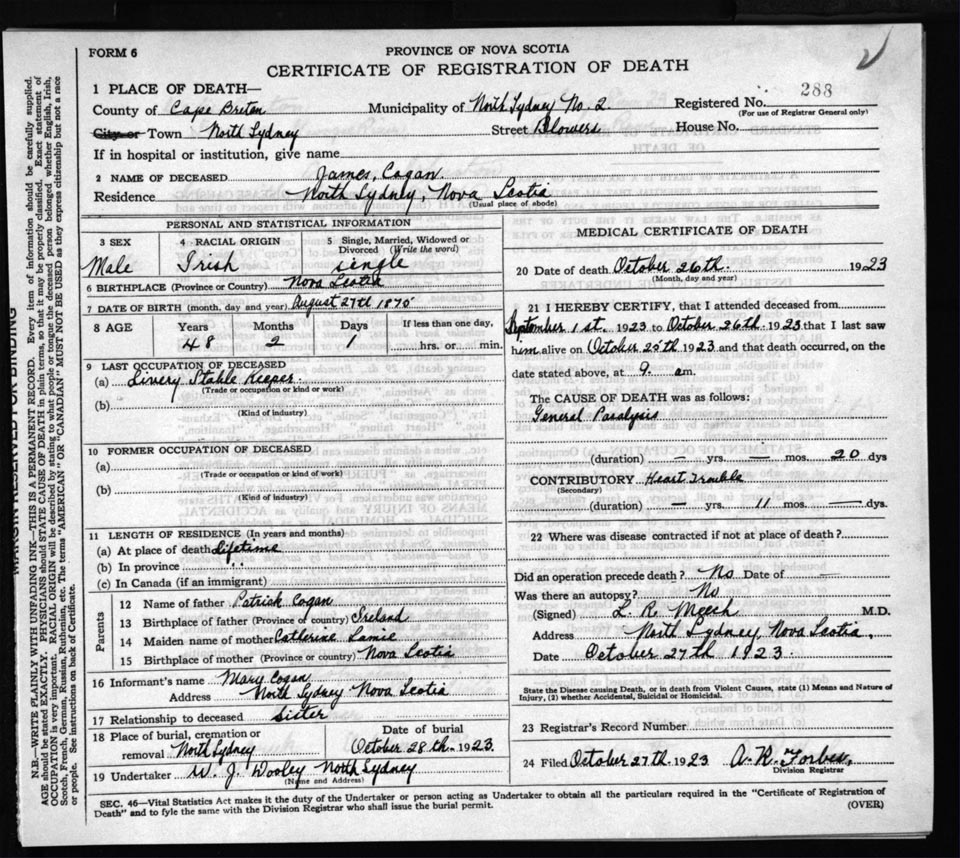 FORM 6
PROVINCE OF NOVA SCOTIA
CERTIFICATE OF REGISTRATION OF DEATH
1 PLACE OF DEATH—
288
County of Cape Breton Municipality of North Sydney No. 2 Registered No.
(For use of Registrar General only)
City or Town North Sydney Street Blowers House No.
If in hospital or institution, give name
2 NAME OF DECEASED James, Cogan.
Residence North Sydney, Nova Scotia
(Usual place of abode)
PERSONAL AND STATISTICAL INFORMATION
3 SEX 4 RACIAL ORIGIN 5 Single, Married, Widowed or Divorced (Write the word)
Male Irish single
6 BIRTHPLACE (Province or Country) Nova Scotia
7 DATE OF BIRTH (month, day and year) August 27th 1875
8 AGE Years Months Days If less than one day,
48 2 1 hrs. or min.
9 LAST OCCUPATION OF DECEASED
(a) Livery Stable Keeper
(Trade or occupation or kind or work)
(b)
(Kind of industry)
10 FORMER OCCUPATION OF DECEASED
(a)
(Trade or occupation or kind of work)
(b)
(Kind of industry)
11 LENGTH OF RESIDENCE (In years and months)
(a) At place of death Lifetime
(b) In province " "
(c) In Canada (if an immigrant)
Parents
12 Name of father Patrick Cogan
13 Birthplace of father (Province or country) Ireland
14 Maiden name of mother Catherine
15 Birthplace of mother (Province or country) Nova Scotia
16 Informant's name Mary Cogan
Address North Sydney Nova Scotia
17 Relationship to deceased Sister
18 Place of burial, cremation or removal North Sydney
Date of burial
October 28th 1923
19 Undertaker W. J. Dooley North Sydney
(Name and Address)
MEDICAL CERTIFICATE OF DEATH
20 Date of death October 26th 1923
(Month, day and year)
21 I HEREBY CERTIFY, that I attended deceased from
September 1st. 1923 to October 26th 1923 that I last saw
him alive on October 25th 1923 and that death occurred, on the
date stated above, at 9. am.
The CAUSE OF DEATH was as follows:
General Paralysis
(duration) — yrs. — mos. 20 dys
CONTRIBUTORY Heart Trouble
(Secondary)
(duration) — yrs. 11 mos. — dys.
22 Where was disease contracted if not at place of death?
Did an operation precede death? No Date of —
Was there an autopsy? No
(Signed) L. R. Meech M.D.
Address North Sydney, Nova Scotia,
Date October 27th 1923.
State the Disease causing Death, or in death from Violent Causes, state (1) Means and Nature of
Injury, (2) whether Accidental, Suicidal or Homicidal.
23 Registrar's Record Number
24 Filed October 27th 1923 A. R. Forbes,
Division Registrar
SEC. 46—Vital Statistics Act makes it the duty of the Undertaker or person acting as Undertaker to obtain all the particulars required in the "Certificate of Registration of
Death" and to fyle the same with the Division Registrar who shall issue the burial permit.
(OVER)
MARGIN RESERVED FOR BINDING
N.B.—WRITE PLAINLY WITH UNFADING INK—THIS IS A PERMANENT RECORD. Every item of information should be carefully supplied.
AGE should be stated EXACTLY. PHYSICIANS should STATE CAUSE OF DEATH in plain terms, so that it may be properly classified. Exact statement of
OCCUPATION is very important. RACIAL ORIGIN will be described by stating to what people or tongue the deceased person belonged whether English, Irish,
Scotch, French, German, Russian, Ruthenian, etc. The terms "AMERICAN" OR "CANADIAN" MUST NOT BE USED as they express citizenship but not a race
or people. See instructions on back of Certificate.